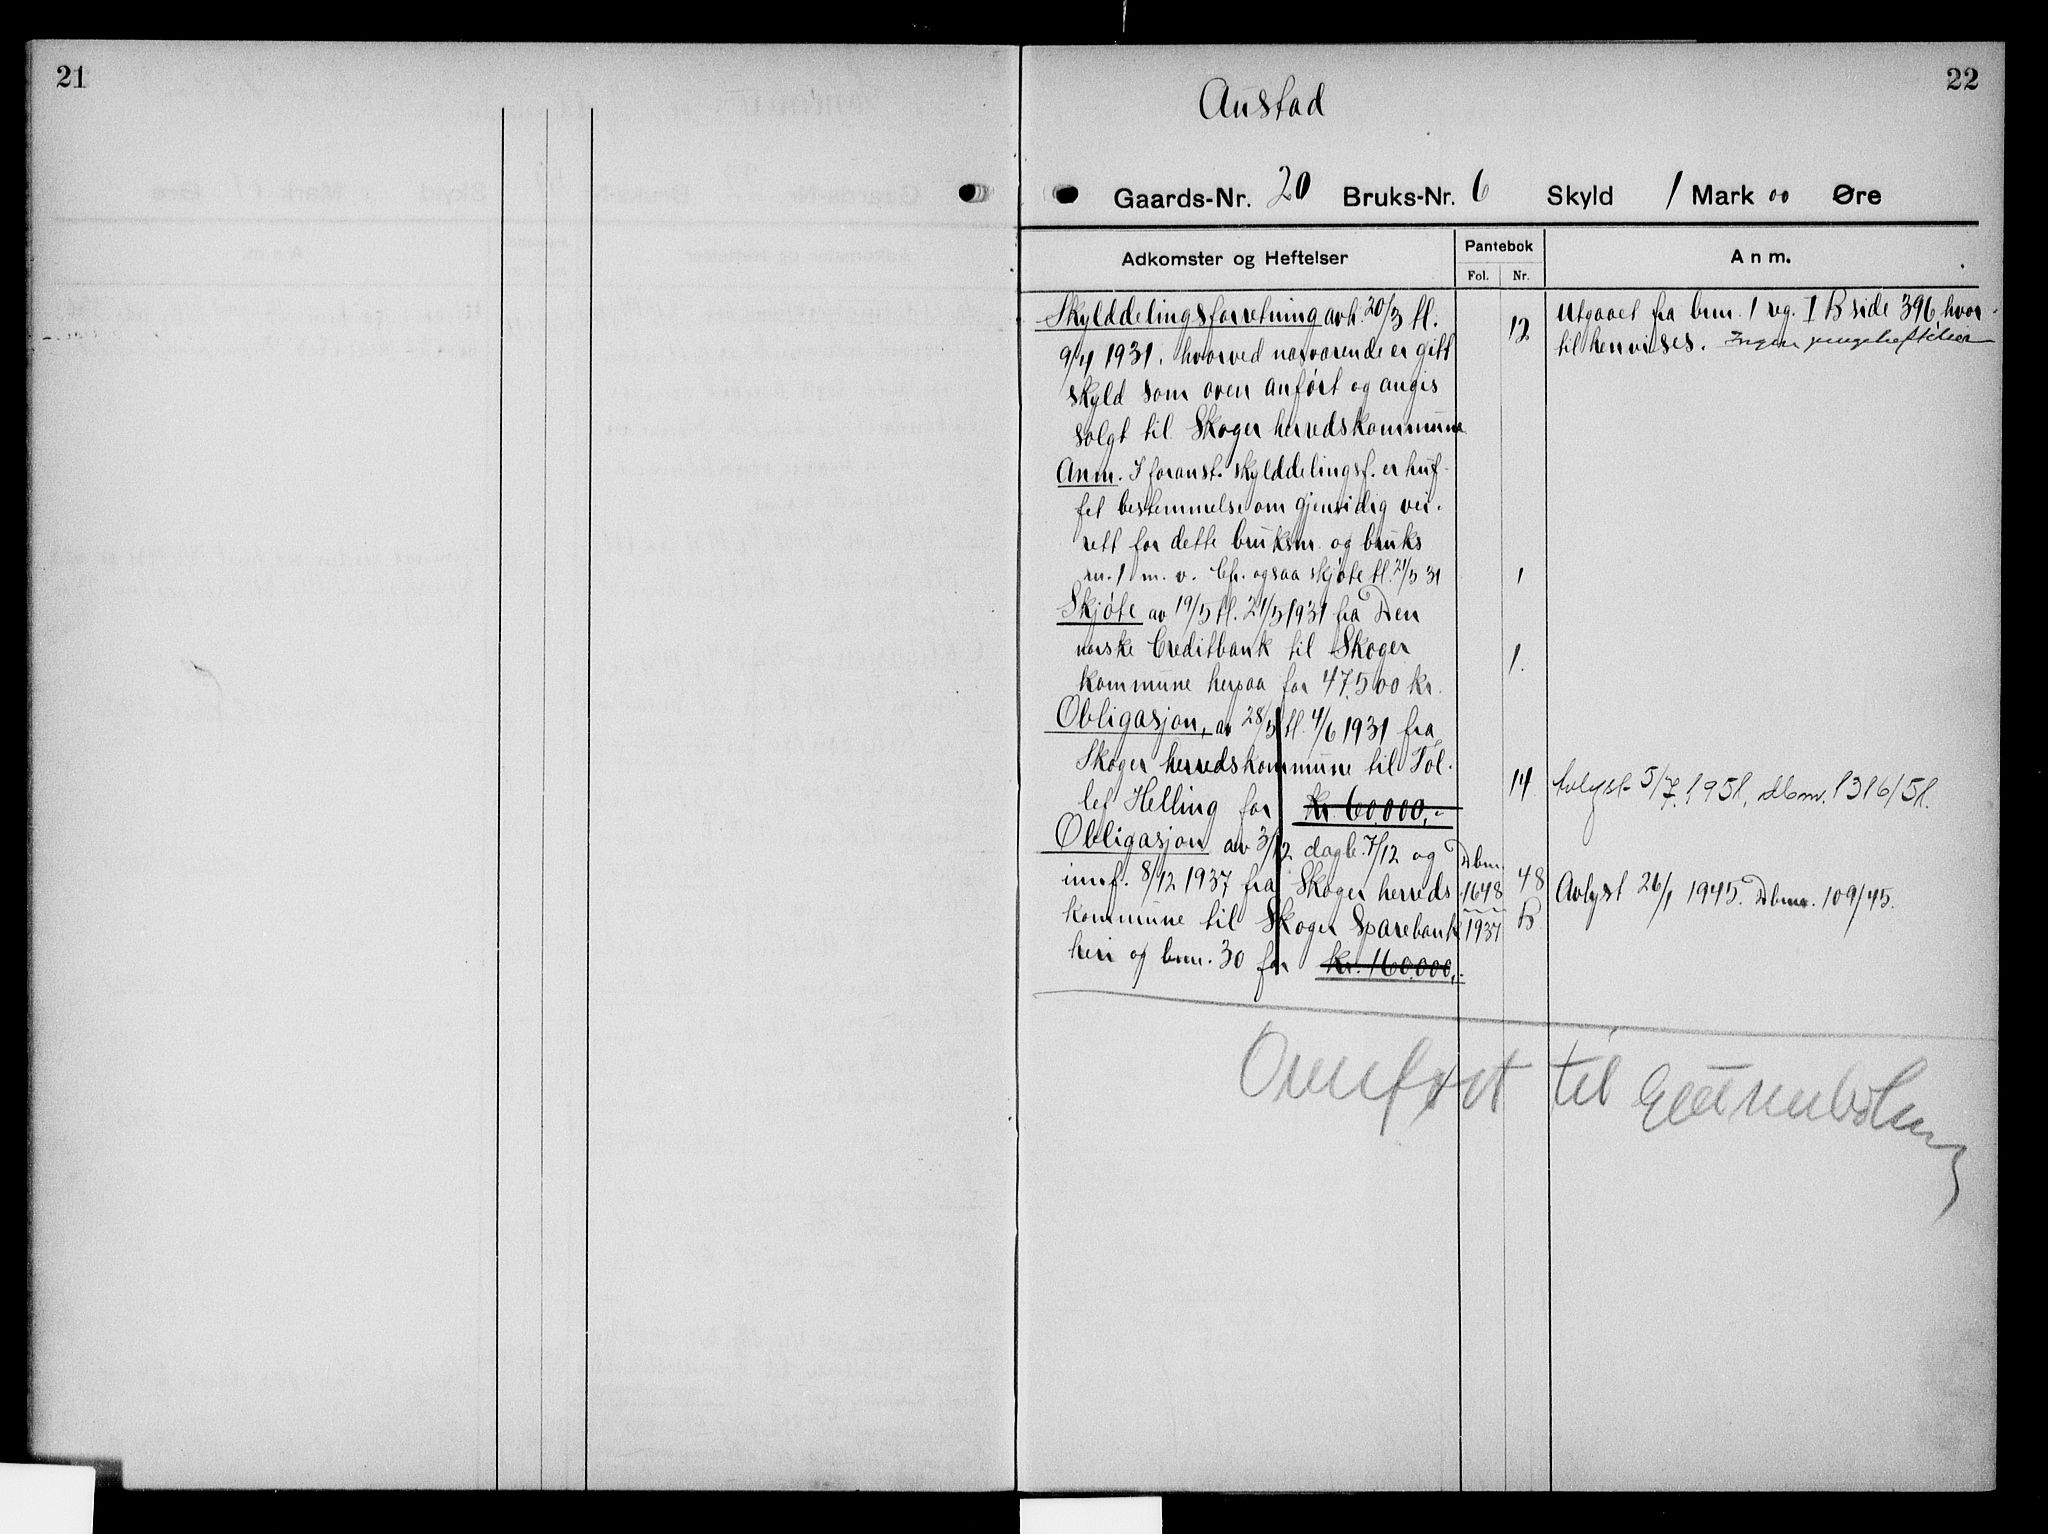 21
22
Austad
Gaards-Nr. 20 Bruks-Nr. 6 Skyld 1 Mark 00 Øre
Adkomster og Heftelser
Pantebok
Fol. Nr.
Anm.
Skylddelingsforretning avh. 20/3 tl.
9/4 1931, hvorved nærværende er gitt
skyld som oven anført og angis
solgt til Skoger herredskommune
12
Utgaaet fra brnr. 1 reg. I B side 396 hvor-
til henvises. Ingen pengeheftelser
Anm. I foranst. skylddelingsf. er huf-
fet bestemmelse om gjensidig vei-
rett for dette bruksnr. og bruks
nr. 1 m. v. Cfr. ogsaa skjøte tl. 21/5 31
1
Skjøte av 19/5 tl. 21/5 1931 fra Den
norske Creditbank til Skoger
kommune herpaa for 47.500 kr.
1.
Obligasjon, av 28/5 tl. 4/6 1931 fra
Skoger herredskommune til Tol-
lef Helling for Kr 60.000,-
14
Avlyst 5/7 1951, dbnr. 1316/51.
Obligasjon av 3/12 dagb. 7/12 og
innf. 8/12 1937 fra Skoger herreds
kommune til Skoger Sparebank
heri og brnr. 30 for kr. 160.000,-
Dbnr.
1648
1937
48
B
Avlyst 26/1 1945. Dbnr. 109/45.
Overført til